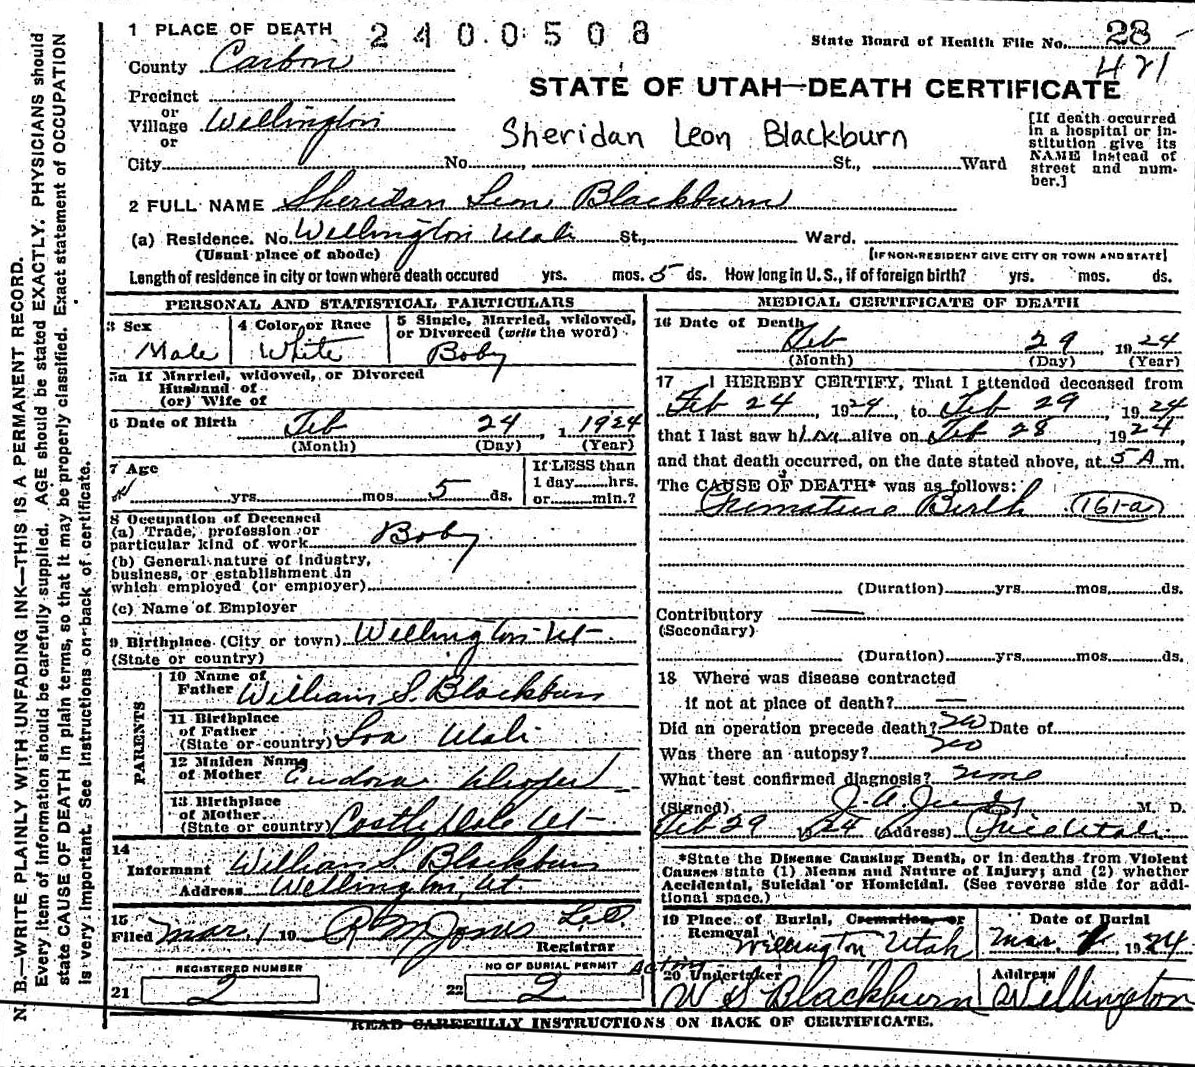 1 PLACE OF DEATH 2400508
State Board of Health File No. 28
421
County Carbon
STATE OF UTAH—DEATH CERTIFICATE
Precinct
or
Village Wellington
or
Sheridan Leon Blackburn
City No. , St., Ward
[If death occurred
in a hospital or in-
stitution give its
NAME instead of
street and num-
ber.]
2 FULL NAME Sheridan Leon Blackburn
(a) Residence. No. Wellington Utah St., Ward.
(Usual place of abode) [IF NON-RESIDENT GIVE CITY OR TOWN AND STATE]
Length of residence in city or town where death occured yrs. mos. 5 ds. How long in U.S., if of foreign birth? yrs. mos. ds.
PERSONAL AND STATISTICAL PARTICULARS
3 Sex
Male
4 Color or Race
White
5 Single, Married, widowed,
or Divorced (write the word)
Boby
5a If Married, widowed, or Divorced
Husband of
(or) Wife of
6 Date of Birth Feb 24, 1924
(Month) (Day) (Year)
7 Age
yrs. mos. 5 ds.
If LESS than
1 day hrs.
or min.?
8 Occupation of Deceased
(a) Trade, profession or
particular kind of work Boby
(b) General nature of industry,
business, or establishment in
which employed (or employer)
(c) Name of Employer
9 Birthplace (City or town) Wellington Ut
(State or country)
PARENTS
10 Name of
Father William S. Blackburn
11 Birthplace
of Father
(State or country) Loa Utah
12 Maiden Name
of Mother Eudora
13 Birthplace
of Mother
(State or country) Castle Dale Ut
14
Informant William S. Blackburn
Address Wellington, Ut.
15
Filed Mar. 1 19 R M Jones
Registrar
REGISTERED NUMBER
21 2
NO OF BURIAL PERMIT
22 2
MEDICAL CERTIFICATE OF DEATH
16 Date of Death
Feb 29 1924
(Month) (Day) (Year)
17 I HEREBY CERTIFY, That I attended deceased from
Feb 24, 1924, to Feb 29, 1924
that I last saw him alive on Feb 28, 1924,
and that death occurred, on the date stated above, at 5 A m.
The CAUSE OF DEATH* was as follows:
Premature Birth (161-a)
(Duration) yrs. mos. ds.
Contributory —
(Secondary)
(Duration) yrs. mos. ds.
18 Where was disease contracted
if not at place of death? —
Did an operation precede death? No Date of
Was there an autopsy? No
What test confirmed diagnosis? none
(Signed) J. A. M. D.
Feb 29 1924 (Address) Price Utah
*State the Disease Causing Death, or in deaths from Violent
Causes state (1) Means and Nature of Injury; and (2) whether
Accidental, Suicidal or Homicidal. (See reverse side for addi-
tional space.)
19 Place of Burial, Cremation or
Removal
Wellington Utah
Date of Burial
Mar. 1924
Acting
20 Undertaker
W S Blackburn
Address
Wellington
READ CAREFULLY INSTRUCTIONS ON BACK OF CERTIFICATE.
N. B.—WRITE PLAINLY WITH UNFADING INK—THIS IS A PERMANENT RECORD.
Every item of information should be carefully supplied. AGE should be stated EXACTLY. PHYSICIANS should
state CAUSE OF DEATH in plain terms, so that it may be properly classified. Exact statement of OCCUPATION
is very important. See instructions on back of certificate.